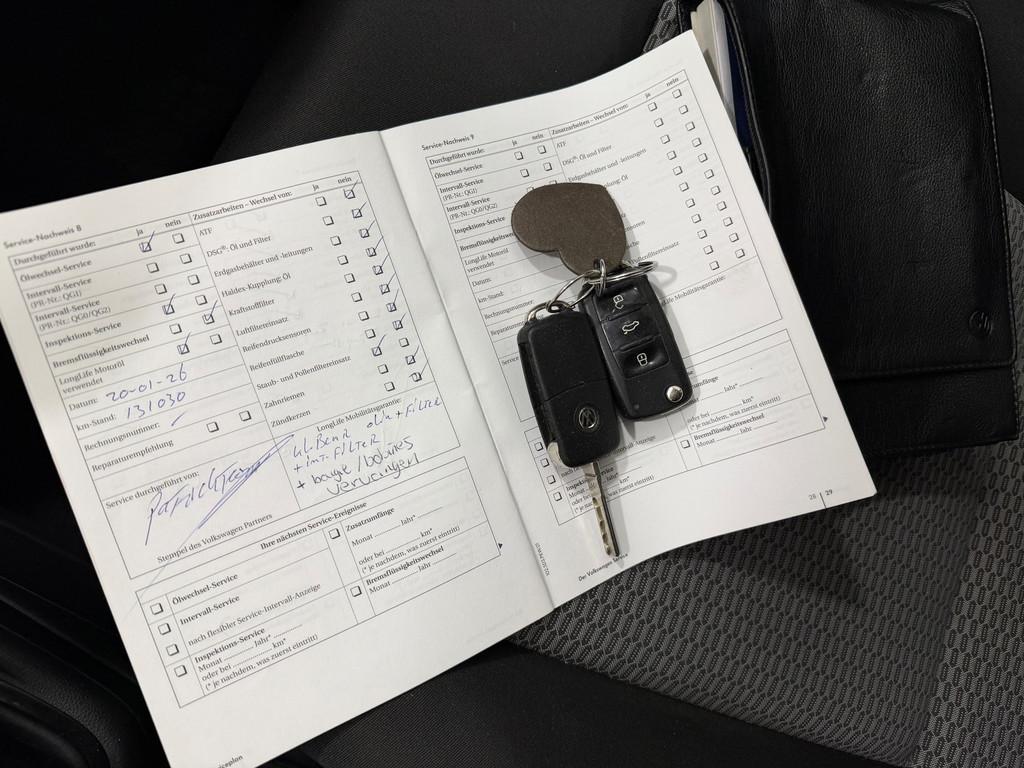 Service-Nachweis 8
Durchgeführt wurde: ja nein
Ölwechsel-Service
Intervall-Service
(PR-Nr.: QG1)
Intervall-Service
(PR-Nr.: QG0/QG2)
Inspektions-Service
Bremsflüssigkeitswechsel
LongLife Motoröl
verwendet
Datum: 20-01-26
km-Stand: 131030
Rechnungsnummer:
Reparaturempfehlung
Zusatzarbeiten – Wechsel von: ja nein
ATF
DSG®: Öl und Filter
Erdgasbehälter und -leitungen
Haldex-Kupplung: Öl
Kraftstofffilter
Luftfiltereinsatz
Reifendrucksensoren
Reifenfüllflasche
Staub- und Pollenfiltereinsatz
Zahnriemen
Zündkerzen
Service durchgeführt von:
Stempel des Volkswagen Partners
LongLife Mobilitätsgarantie:
+ FILTER
+ int. FILTER
+ bougie / bobines
Ihre nächsten Service-Ereignisse
Ölwechsel-Service
Intervall-Service
nach flexibler Service-Intervall-Anzeige
Inspektions-Service
Monat Jahr*
oder bei km*
(* je nachdem, was zuerst eintritt)
Zusatzumfänge
Monat Jahr*
oder bei km*
(* je nachdem, was zuerst eintritt)
Bremsflüssigkeitswechsel
Monat Jahr
Service-Nachweis 9
Durchgeführt wurde: ja nein
Ölwechsel-Service
Intervall-Service
(PR-Nr.: QG1)
Intervall-Service
(PR-Nr.: QG0/QG2)
Inspektions-Service
LongLife Motoröl
verwendet
Datum:
km-Stand:
Rechnungsnummer:
Zusatzarbeiten – Wechsel von: ja nein
ATF
DSG®: Öl und Filter
Erdgasbehälter und -leitungen
Mobilitätsgarantie:
(* je nachdem, was zuerst eintritt)
Bremsflüssigkeitswechsel
Monat Jahr
28 | 29
Der Volkswagen